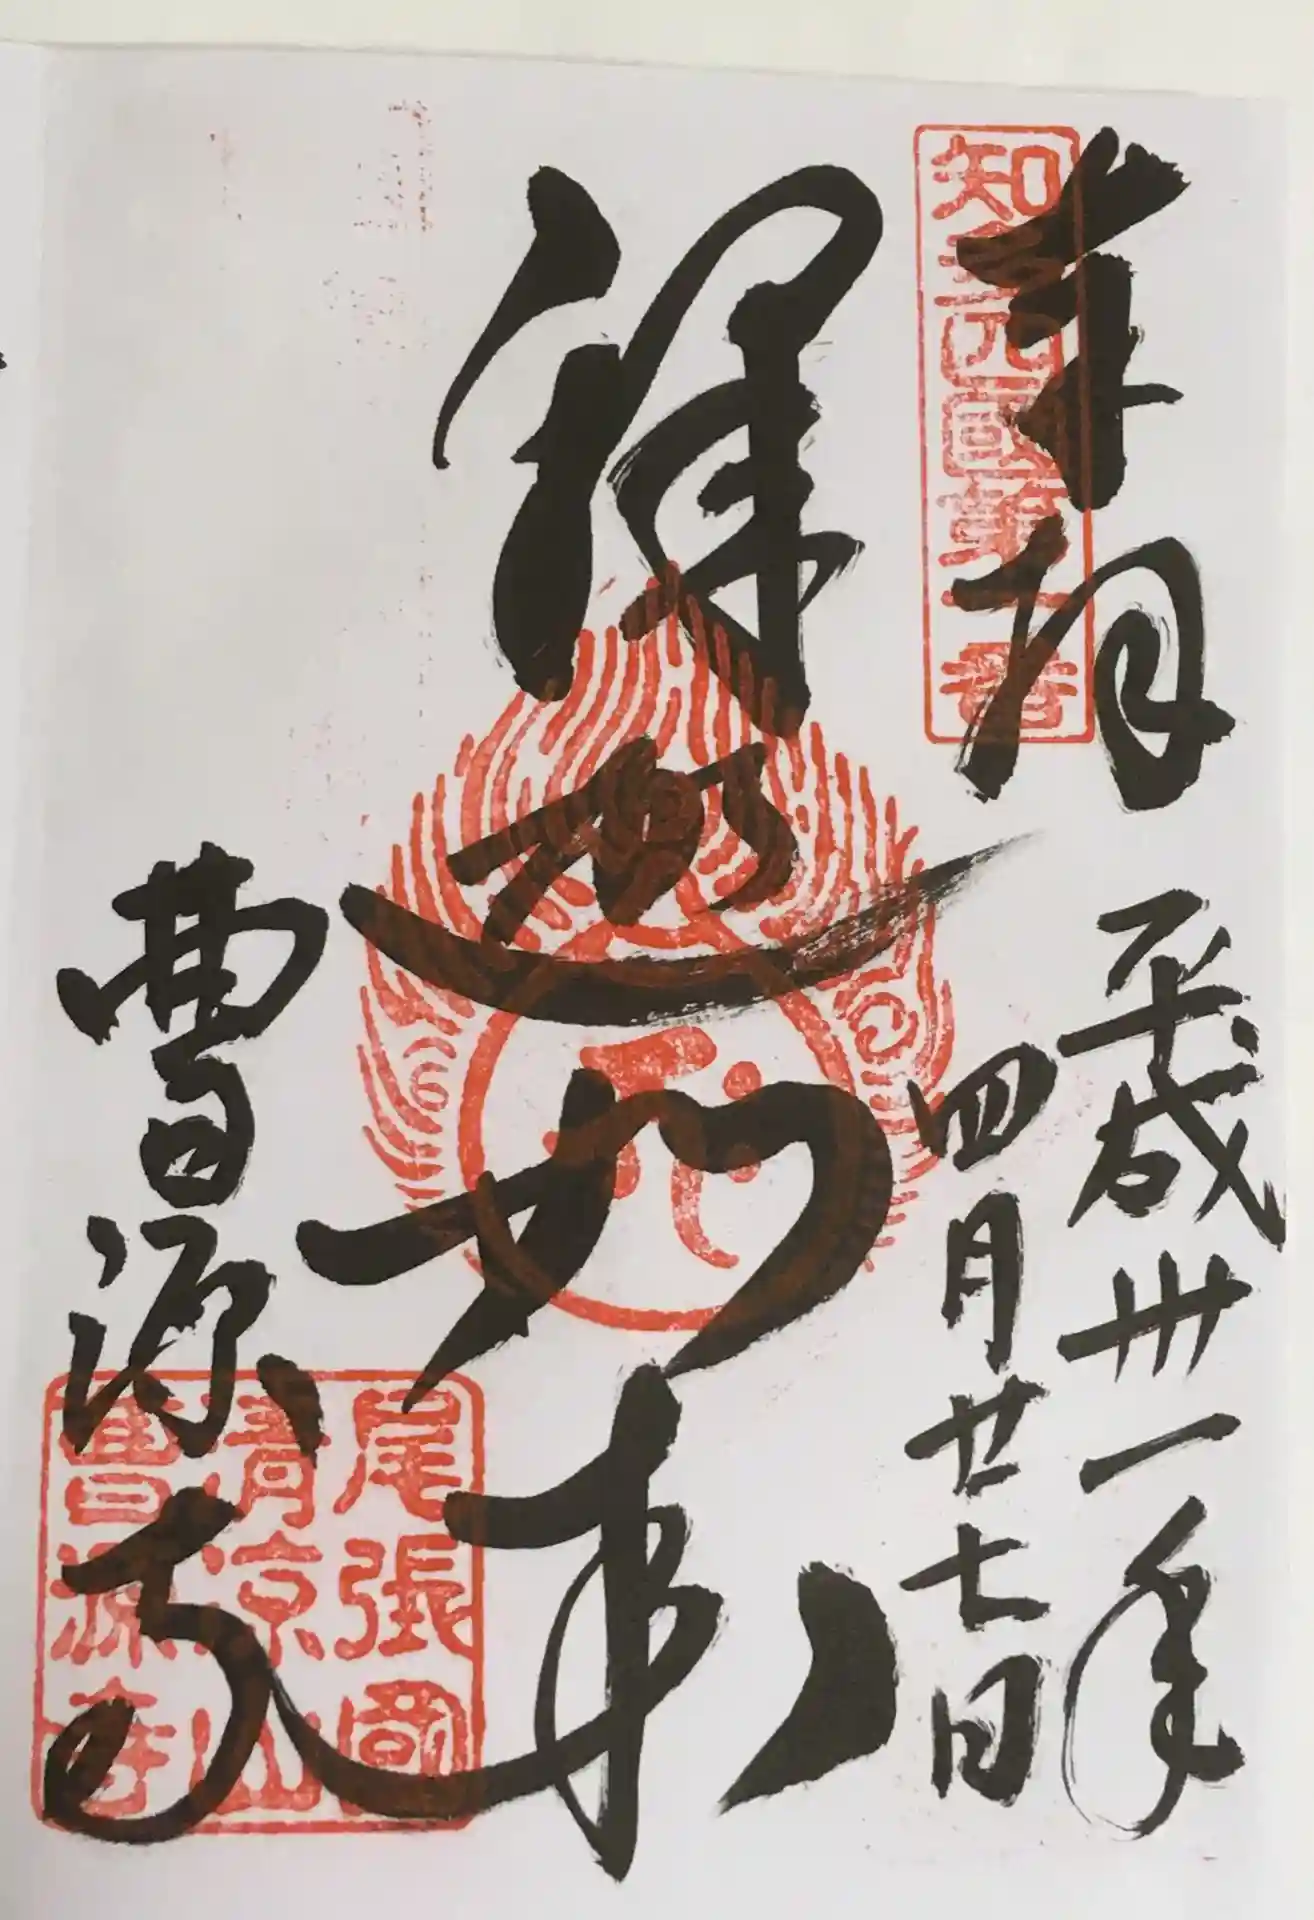 奉拝
平成卅一年
四月廿七日
釋迦如来
曹源寺
知多四國第一番
尾張國
清涼山
曹源寺